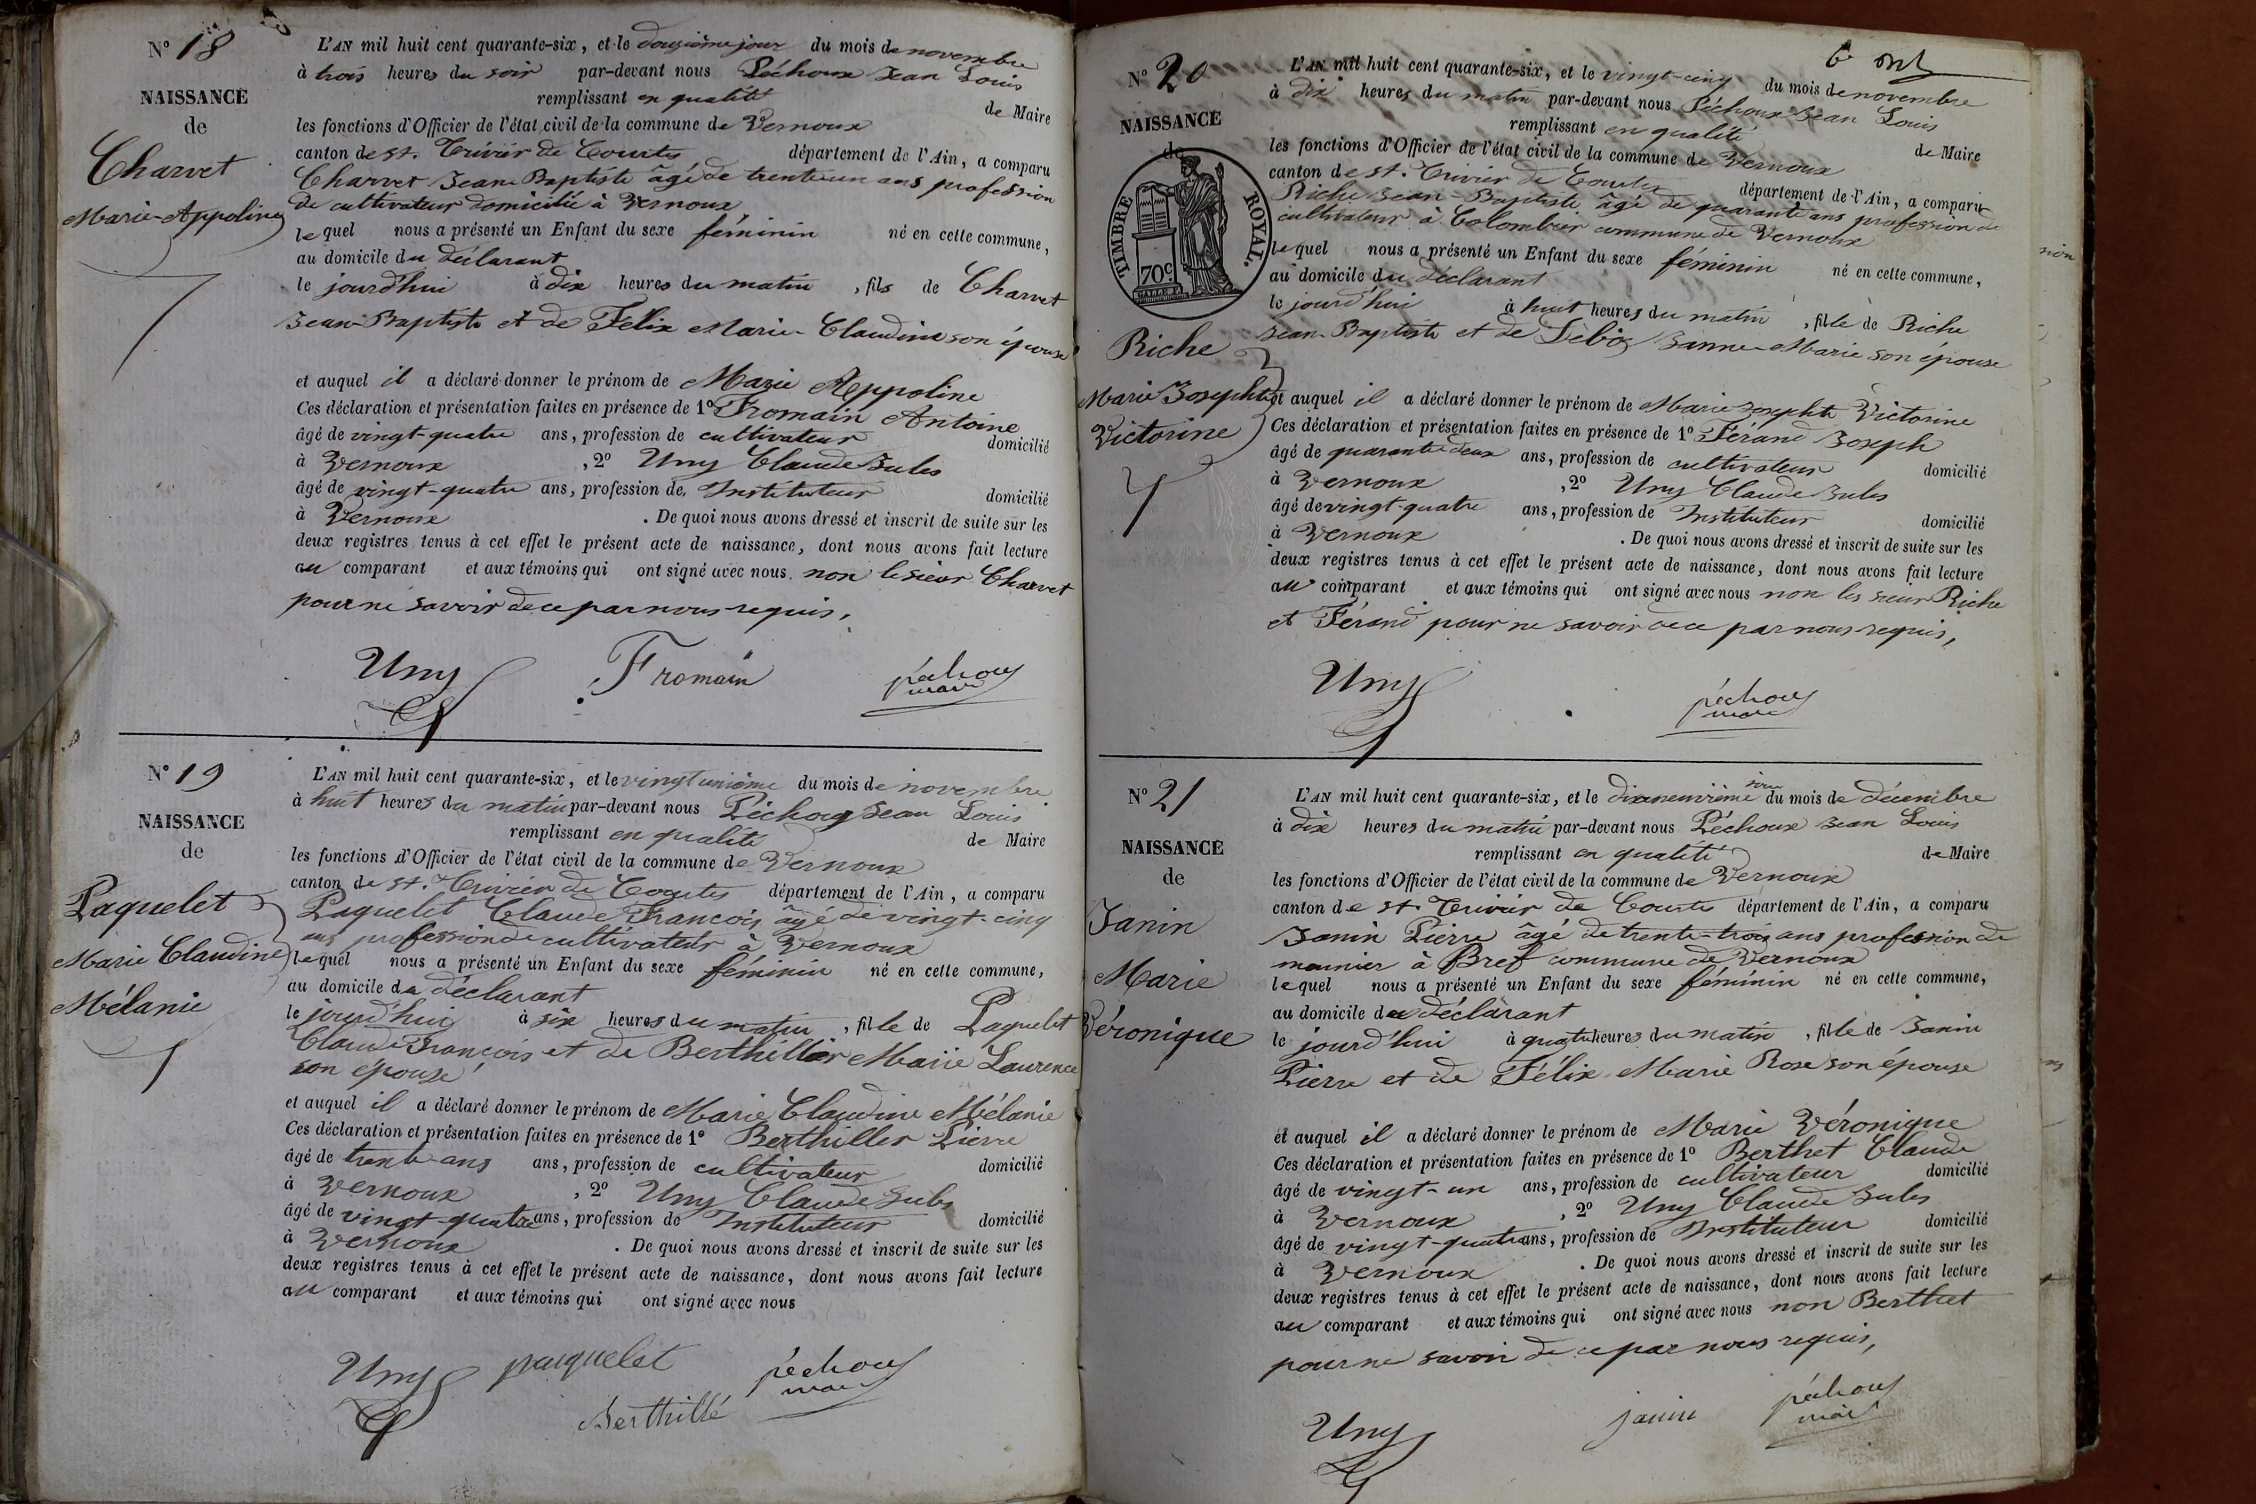 N° 18
NAISSANCE
de
Charvet
Marie-Appoline
L'AN mil huit cent quarante-six, et le douzième jour du mois de novembre
à trois heures du soir par-devant nous Péchoux Jean Louis
remplissant en qualité de Maire
les fonctions d'Officier de l'état civil de la commune de Vernoux
canton de St. Trivier de Courtes département de l'Ain, a comparu
Charvet Jean-Baptiste âgé de trente un ans profession
de cultivateur domicilié à Vernoux
lequel nous a présenté un Enfant du sexe féminin né en cette commune,
au domicile du déclarant
le jourd'hui à dix heures du matin, fils de Charvet
Jean-Baptiste et de Félix Marie-Claudine son épouse
et auquel il a déclaré donner le prénom de Marie Appoline
Ces déclaration et présentation faites en présence de 1° Fromain Antoine
âgé de vingt-quatre ans, profession de cultivateur domicilié
à Vernoux, 2° Uny Claude Jules
âgé de vingt-quatre ans, profession de Instituteur domicilié
à Vernoux. De quoi nous avons dressé et inscrit de suite sur les
deux registres tenus à cet effet le présent acte de naissance, dont nous avons fait lecture
au comparant et aux témoins qui ont signé avec nous non le sieur Charvet
pour ne savoir de ce par nous requis,
Uny Fromain péchoux
maire
N° 19
NAISSANCE
de
Paquelet
Marie Claudine
Mélanie
L'AN mil huit cent quarante-six, et le vingt unième du mois de novembre
à huit heures du matin par-devant nous Péchoux Jean Louis
remplissant en qualité de Maire
les fonctions d'Officier de l'état civil de la commune de Vernoux
canton de St. Trivier de Courtes département de l'Ain, a comparu
Paquelet Claude François âgé de vingt-cinq
ans profession de cultivateur à Vernoux
lequel nous a présenté un Enfant du sexe féminin né en cette commune,
au domicile du déclarant
le jourd'hui à six heures du matin, fille de Paquelet
Claude François et de Berthillier Marie Laurence
son épouse
et auquel il a déclaré donner le prénom de Marie Claudine Mélanie
Ces déclaration et présentation faites en présence de 1° Berthiller Pierre
âgé de trente ans ans, profession de cultivateur domicilié
à Vernoux, 2° Uny Claude Jules
âgé de vingt-quatre ans, profession de Instituteur domicilié
à Vernoux. De quoi nous avons dressé et inscrit de suite sur les
deux registres tenus à cet effet le présent acte de naissance, dont nous avons fait lecture
au comparant et aux témoins qui ont signé avec nous
Uny paquelet péchoux
maire
Berthillé
N° 20
NAISSANCE
de
TIMBRE ROYAL.
70c.
Riche
Marie Josephte
Victorine
L'AN mil huit cent quarante-six, et le vingt-cinq du mois de novembre
à dix heures du matin par-devant nous Péchoux Jean Louis
remplissant en qualité de Maire
les fonctions d'Officier de l'état civil de la commune de Vernoux
canton de St. Trivier de Courtes département de l'Ain, a comparu
Riche Jean-Baptiste âgé de quarante ans profession de
cultivateur à Colombier commune de Vernoux
lequel nous a présenté un Enfant du sexe féminin né en cette commune,
au domicile du déclarant
le jourd'hui à huit heures du matin, fille de Riche
Jean-Baptiste et de Janne-Marie son épouse
et auquel il a déclaré donner le prénom de Marie Josephte Victorine
Ces déclaration et présentation faites en présence de 1° Férand Joseph
âgé de quarante deux ans, profession de cultivateur domicilié
à Vernoux, 2° Uny Claude Jules
âgé de vingt-quatre ans, profession de Instituteur domicilié
à Vernoux. De quoi nous avons dressé et inscrit de suite sur les
deux registres tenus à cet effet le présent acte de naissance, dont nous avons fait lecture
au comparant et aux témoins qui ont signé avec nous non les sieur Riche
et Férand pour ne savoir de ce par nous requis,
Uny péchoux
maire
N° 21
NAISSANCE
de
Janin
Marie
Véronique
L'AN mil huit cent quarante-six, et le dixneuvième jour du mois de décembre
à dix heures du matin par-devant nous Péchoux Jean Louis
remplissant en qualité de Maire
les fonctions d'Officier de l'état civil de la commune de Vernoux
canton de St. Trivier de Courtes département de l'Ain, a comparu
Janin Pierre âgé de trente-trois ans profession de
meunier à Bref commune de Vernoux
lequel nous a présenté un Enfant du sexe féminin né en cette commune,
au domicile du déclarant
le jourd'hui à quatre heures du matin, fille de Janin
Pierre et de Félix Marie Rose son épouse
et auquel il a déclaré donner le prénom de Marie Véronique
Ces déclaration et présentation faites en présence de 1° Berthet Claude
âgé de vingt-un ans, profession de cultivateur domicilié
à Vernoux, 2° Uny Claude Jules
âgé de vingt-quatre ans, profession de Instituteur domicilié
à Vernoux. De quoi nous avons dressé et inscrit de suite sur les
deux registres tenus à cet effet le présent acte de naissance, dont nous avons fait lecture
au comparant et aux témoins qui ont signé avec nous non Berthet
pour ne savoir de ce par nous requis,
Uny janin péchoux
maire